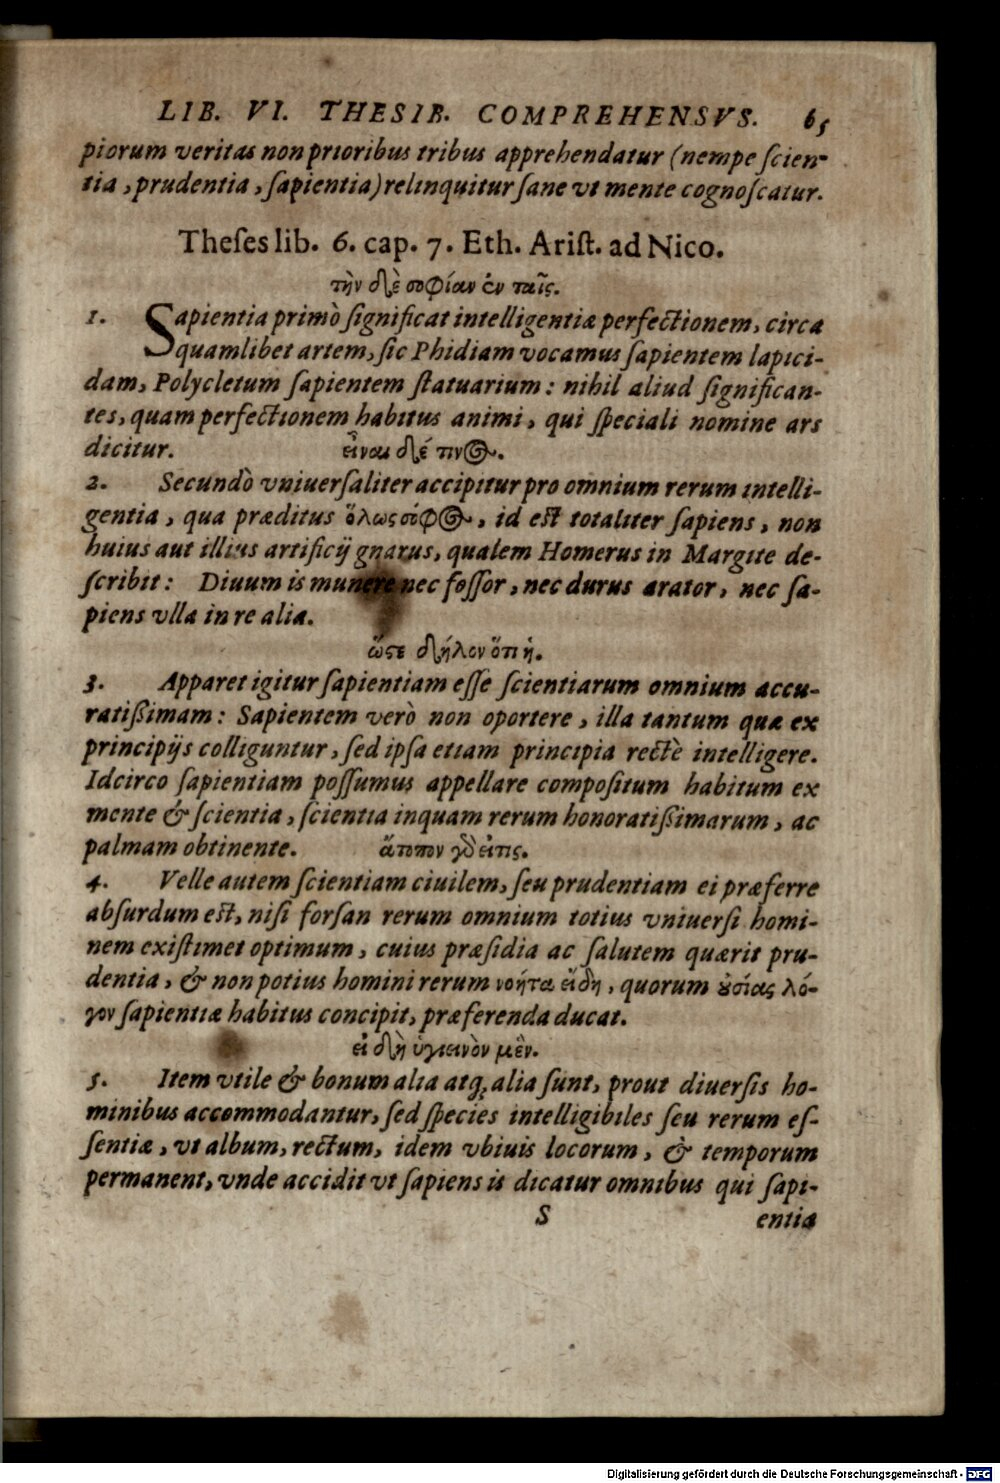 LIB. VI. THESIB. COMPREHENSVS. 65
piorum veritas non prioribus tribus apprehendatur (nempe ſcien-
tia, prudentia, ſapientia) relinquitur ſane vt mente cognoſcatur.
Theſes lib. 6. cap. 7. Eth. Ariſt. ad Nico.
τὴν δὲ σοφίαν ἐν ταῖς.
1. Sapientia primò ſignificat intelligentiæ perfectionem, circa
quamlibet artem, ſic Phidiam vocamus ſapientem lapici-
dam, Polycletum ſapientem ſtatuarium: nihil aliud ſignifican-
tes, quam perfectionem habitus animi, qui ſpeciali nomine ars
dicitur. εἶναι δέ τινος.
2. Secundò vniuerſaliter accipitur pro omnium rerum intelli-
gentia, qua præditus ὅλως σοφὸς, id eſt totaliter ſapiens, non
huius aut illius artificij gnarus, qualem Homerus in Margite de-
ſcribit: Diuum is munere nec foſſor, nec durus arator, nec ſa-
piens vlla in re alia.
ὥστε δῆλον ὅτι ἡ.
3. Apparet igitur ſapientiam eſſe ſcientiarum omnium accu-
ratißimam: Sapientem verò non oportere, illa tantum quæ ex
principijs colliguntur, ſed ipſa etiam principia rectè intelligere.
Idcirco ſapientiam poſſumus appellare compoſitum habitum ex
mente & ſcientia, ſcientia inquam rerum honoratißimarum, ac
palmam obtinente. ἄτοπον γὰρ εἴ τις.
4. Velle autem ſcientiam ciuilem, ſeu prudentiam ei præferre
abſurdum eſt, niſi forſan rerum omnium totius vniuerſi homi-
nem exiſtimet optimum, cuius præſidia ac ſalutem quærit pru-
dentia, & non potius homini rerum νοήτα εἴδη, quorum οὐσίας λό-
γον ſapientiæ habitus concipit, præferenda ducat.
εἰ δὴ ὑγιεινὸν μὲν.
5. Item vtile & bonum alia atq; alia ſunt, prout diuerſis ho-
minibus accommodantur, ſed ſpecies intelligibiles ſeu rerum eſ-
ſentiæ, vt album, rectum, idem vbiuis locorum, & temporum
permanent, vnde accidit vt ſapiens is dicatur omnibus qui ſapi-
S entia
Digitalisierung gefördert durch die Deutsche Forschungsgemeinschaft - DFG